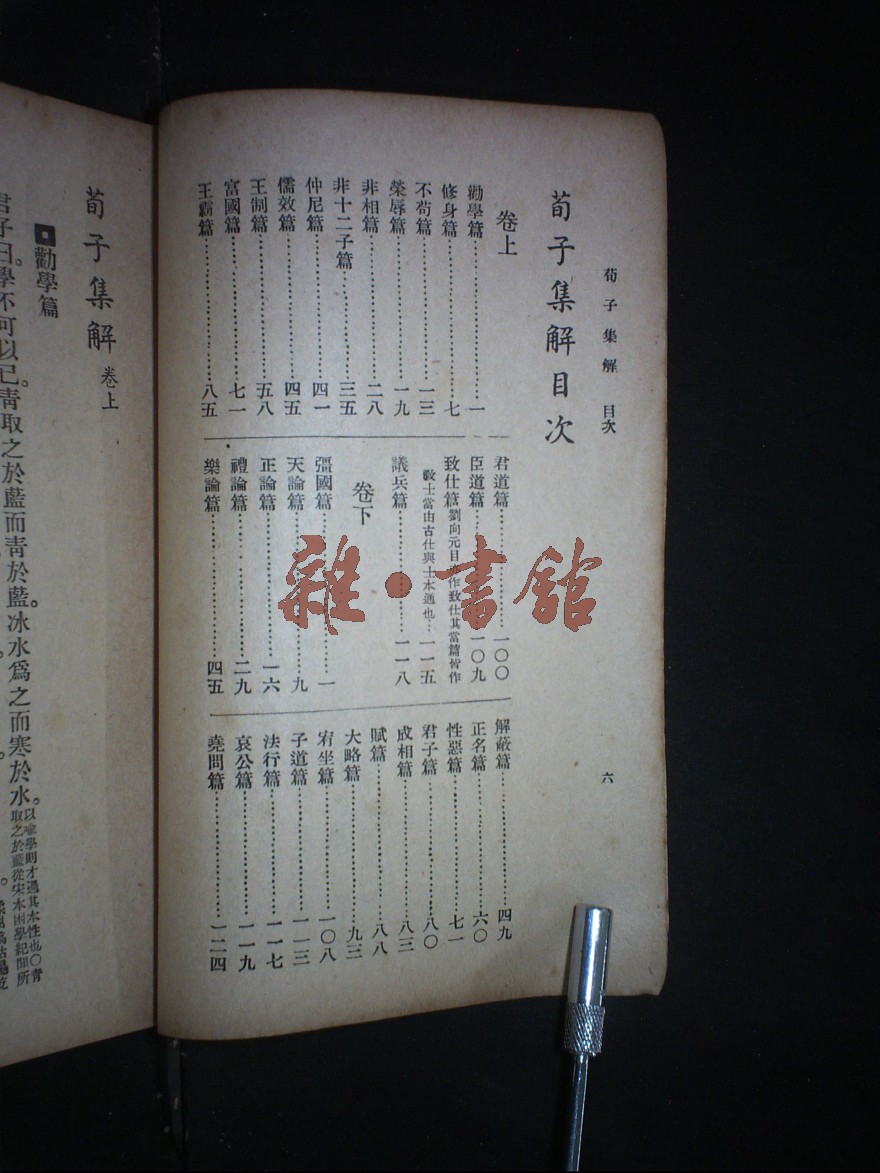 荀子集解 目次
六
荀子集解目次
卷上
勸學篇……一
修身篇……七
不苟篇……一三
榮辱篇……一九
非相篇……二八
非十二子篇……三五
仲尼篇……四一
儒效篇……四五
王制篇……五八
富國篇……七一
王霸篇……八五
君道篇……一〇〇
臣道篇……一〇九
致仕篇劉向元目亦作致仕其當篇皆作
致士當由古仕與士本通也…一一五
議兵篇……一一八
卷下
彊國篇……一
天論篇……九
正論篇……一六
禮論篇……二九
樂論篇……四五
解蔽篇……四九
正名篇……六〇
性惡篇……七一
君子篇……八〇
成相篇……八三
賦篇……八八
大略篇……九三
宥坐篇……一〇八
子道篇……一一三
法行篇……一一七
哀公篇……一一九
堯問篇……一二四
雜·書館
荀子集解 卷上
勸學篇
君子曰。學不可以已。青取之於藍而青於藍。冰水爲之而寒於水。
以喻學則才過其本性也〇青
取之於藍從宋本困學紀聞所